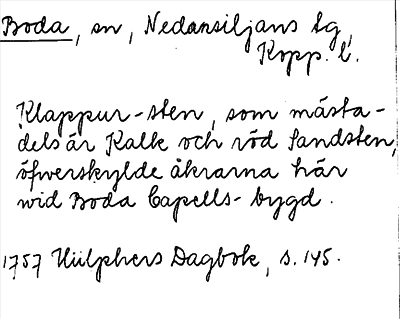 Boda, sn, Nedansiljans tg,
Kopp. l.
Klappur-sten, som mästa-
dels är Kalk och röd Sandsten,
öfwerskylde åkrarna här
wid Boda Capells-bygd.
1757 Hülphers Dagbok, s. 145.